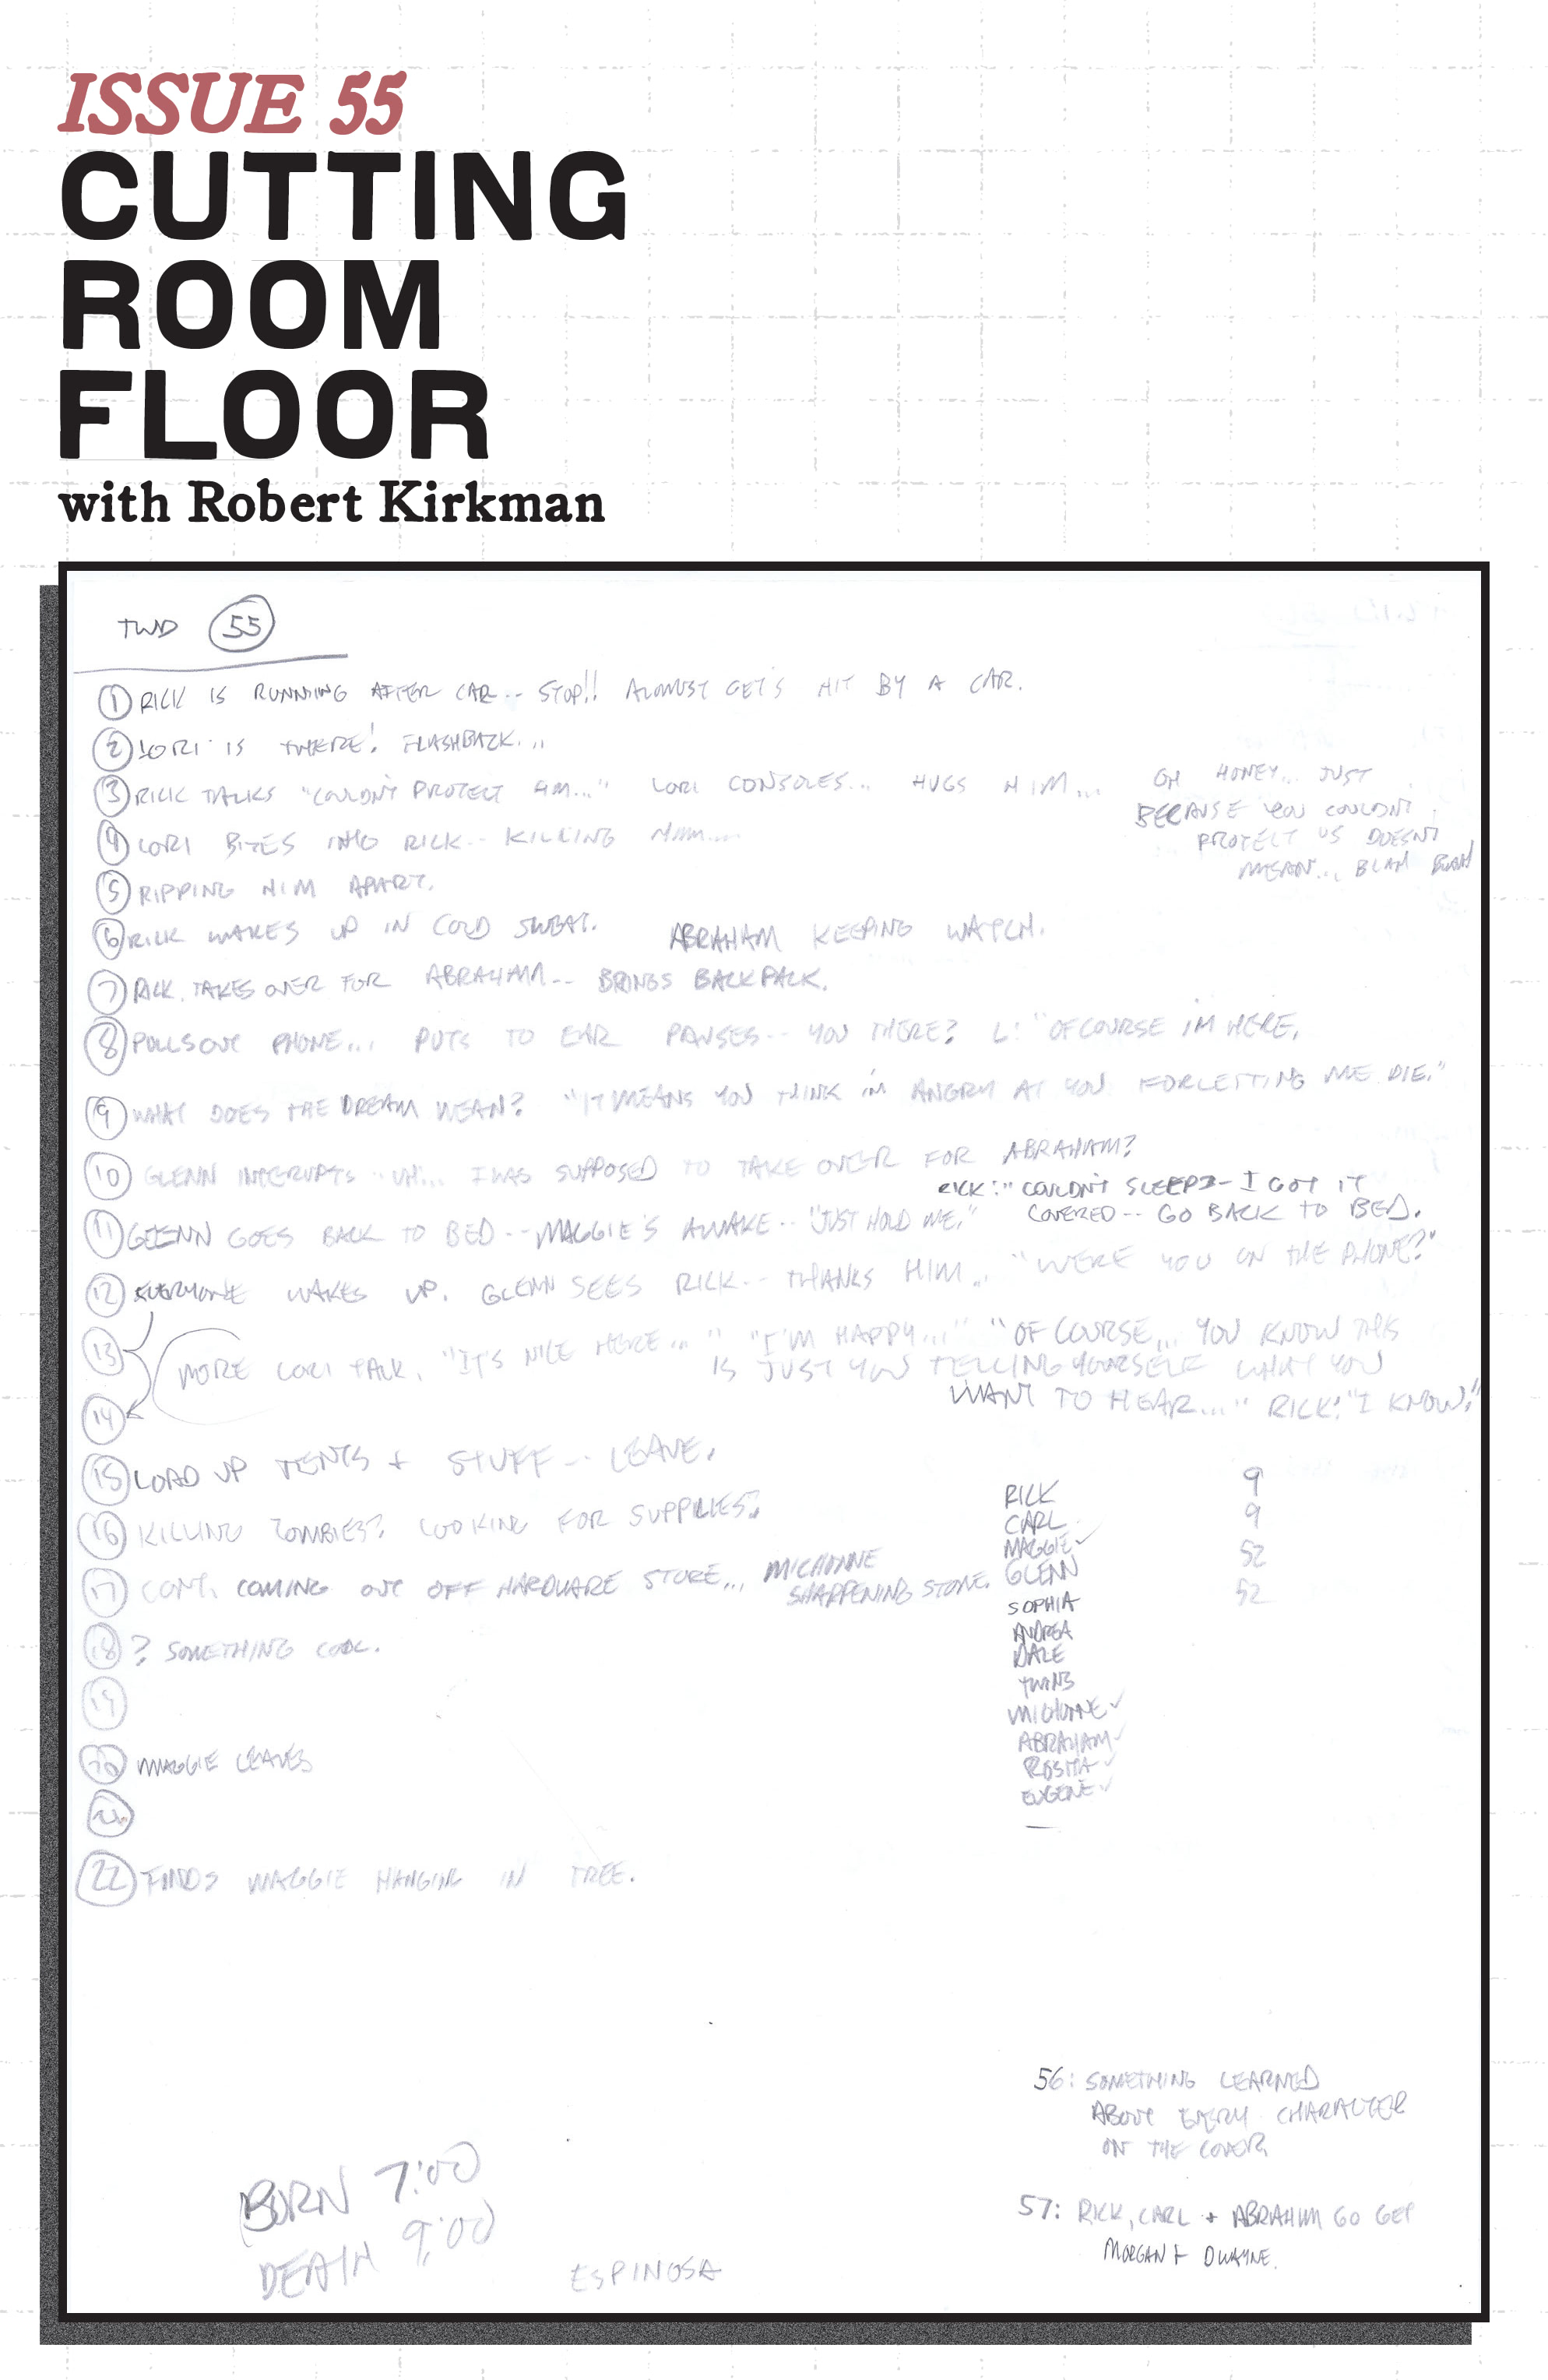 ISSUE 55
CUTTING
ROOM
FLOOR
with Robert Kirkman
TWD 55
1 RICK IS RUNNING AFTER CAR-- STOP!! ALMOST GETS HIT BY A CAR.
2 LORI IS THERE! FLASHBACK...
3 RICK TALKS "COULDN'T PROTECT 'EM..." LORI CONSOLES... HUGS HIM... OH HONEY... JUST
BECAUSE YOU COULDN'T
PROTECT US DOESN'T
MEAN... BLAH BLAH
4 LORI BITES INTO RICK-- KILLING HIM...
5 RIPPING HIM APART.
6 RICK WAKES UP IN COLD SWEAT. ABRAHAM KEEPING WATCH.
7 RICK TAKES OVER FOR ABRAHAM-- BRINGS BACKPACK.
8 PULLS OUT PHONE... PUTS TO EAR PAUSES-- YOU THERE? L: "OF COURSE I'M HERE.
9 WHAT DOES THE DREAM MEAN? "IT MEANS YOU THINK I'M ANGRY AT YOU FOR LETTING ME DIE."
10 GLENN INTERUPTS "UH... I WAS SUPPOSED TO TAKE OVER FOR ABRAHAM?
RICK: "COULDN'T SLEEP-- I GOT IT
COVERED-- GO BACK TO BED.
11 GLENN GOES BACK TO BED-- MAGGIE'S AWAKE-- "JUST HOLD ME."
12 EVERYONE WAKES UP. GLENN SEES RICK-- THANKS HIM... "WERE YOU ON THE PHONE?"
13
MORE LORI TALK. "IT'S NICE HERE..." "I'M HAPPY..." "OF COURSE... YOU KNOW THIS
IS JUST YOU TELLING YOURSELF WHAT YOU
WANT TO HEAR..." RICK: "I KNOW."
14
15 LOAD UP TENTS + STUFF-- LEAVE.
16 KILLING ZOMBIES? LOOKING FOR SUPPLIES?
17 CONT. COMING OUT OFF HARDWARE STORE... MICHONNE
SHARPENING STONE.
18 ? SOMETHING COOL.
19
20 MAGGIE LEAVES
21
22 FINDS MAGGIE HANGING IN TREE.
RICK 9
CARL 9
MAGGIE ✓ 52
GLENN 52
SOPHIA
ANDREA
DALE
TWINS
MICHONNE ✓
ABRAHAM ✓
ROSITA ✓
EUGENE ✓
56: SOMETHING LEARNED
ABOUT EVERY CHARACTER
ON THE COVER
57: RICK, CARL + ABRAHAM GO GET
MORGAN + DWAYNE.
BORN 7:00
DEATH 9:00
ESPINOSA